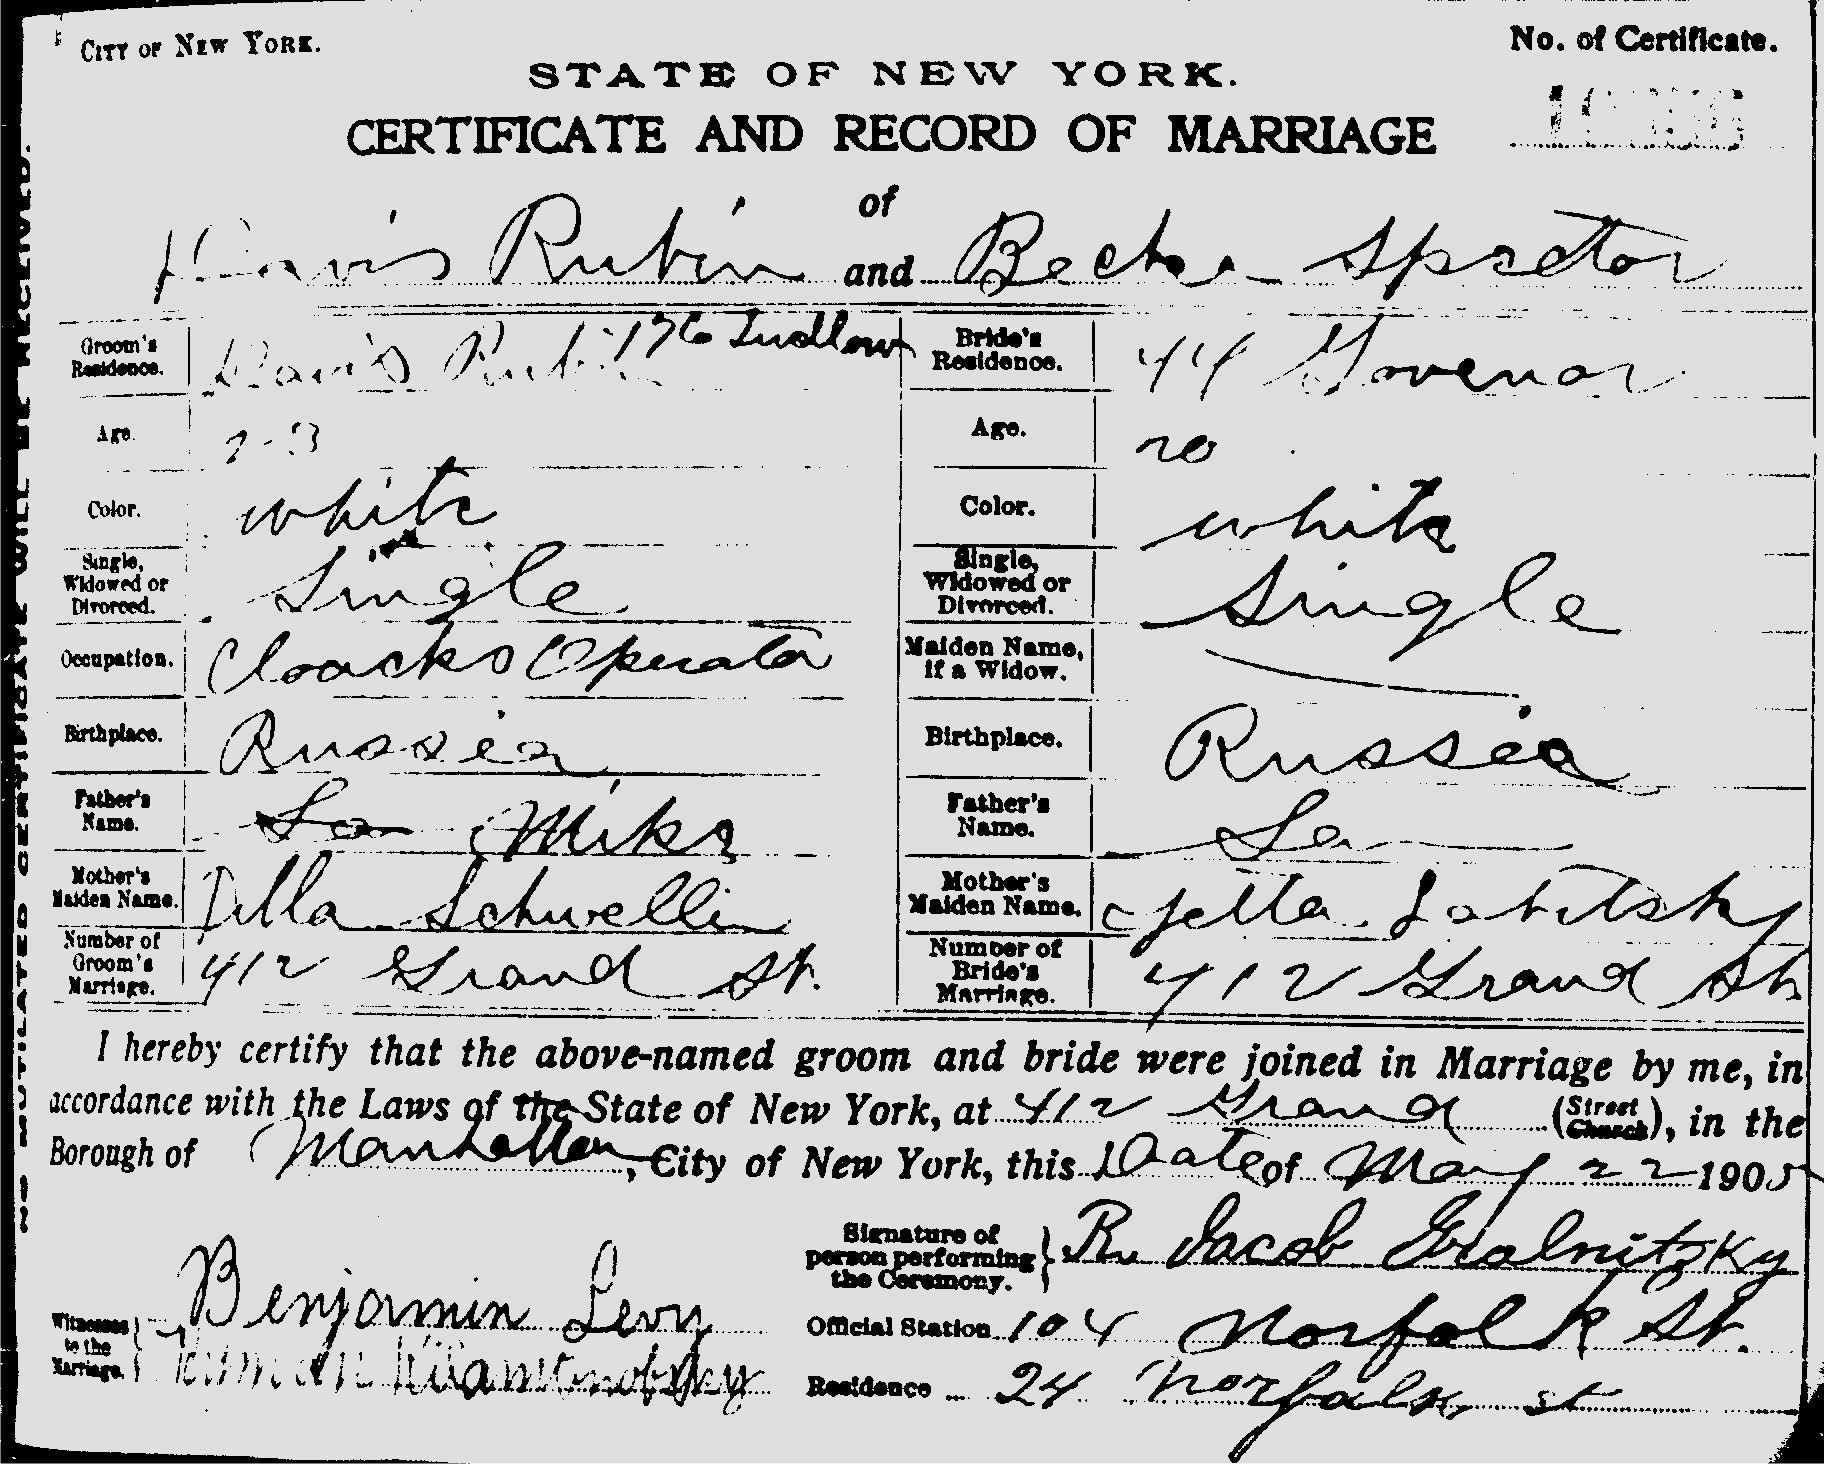 CITY OF NEW YORK.
No. of Certificate.
STATE OF NEW YORK.
CERTIFICATE AND RECORD OF MARRIAGE
of
Davis Rubin and Beckie Spector
Groom's Residence. Davis Rubin 176 Ludlow
Bride's Residence. 44 Govenor
Age. 23
Age. 20
Color. white
Color. white
Single, Widowed or Divorced. Single
Single, Widowed or Divorced. Single
Occupation. Cloacks Operator
Maiden Name, if a Widow.
Birthplace. Russia
Birthplace. Russia
Father's Name. Mike
Father's Name.
Mother's Maiden Name. Della Schwellin
Mother's Maiden Name. Yetta
Number of Groom's Marriage. 412 Grand St.
Number of Bride's Marriage. 412 Grand St
I hereby certify that the above-named groom and bride were joined in Marriage by me, in
accordance with the Laws of the State of New York, at 412 Grand (Street Church), in the
Borough of Manhattan, City of New York, this Date of May 22 1905
Signature of person performing the Ceremony. R. Jacob Gralnitzky
Witnesses to the Marriage. Benjamin Levy
Official Station 104 Norfolk St.
Residence 24 Norfolk st
NO MUTILATED CERTIFICATE WILL BE RECEIVED.